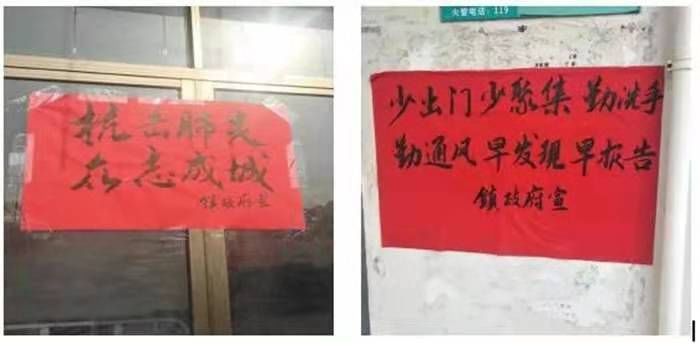 抗击肺炎
众志成城
镇政府宣
火警电话：119
少出门少聚集 勤洗手
勤通风早发现早报告
镇政府宣